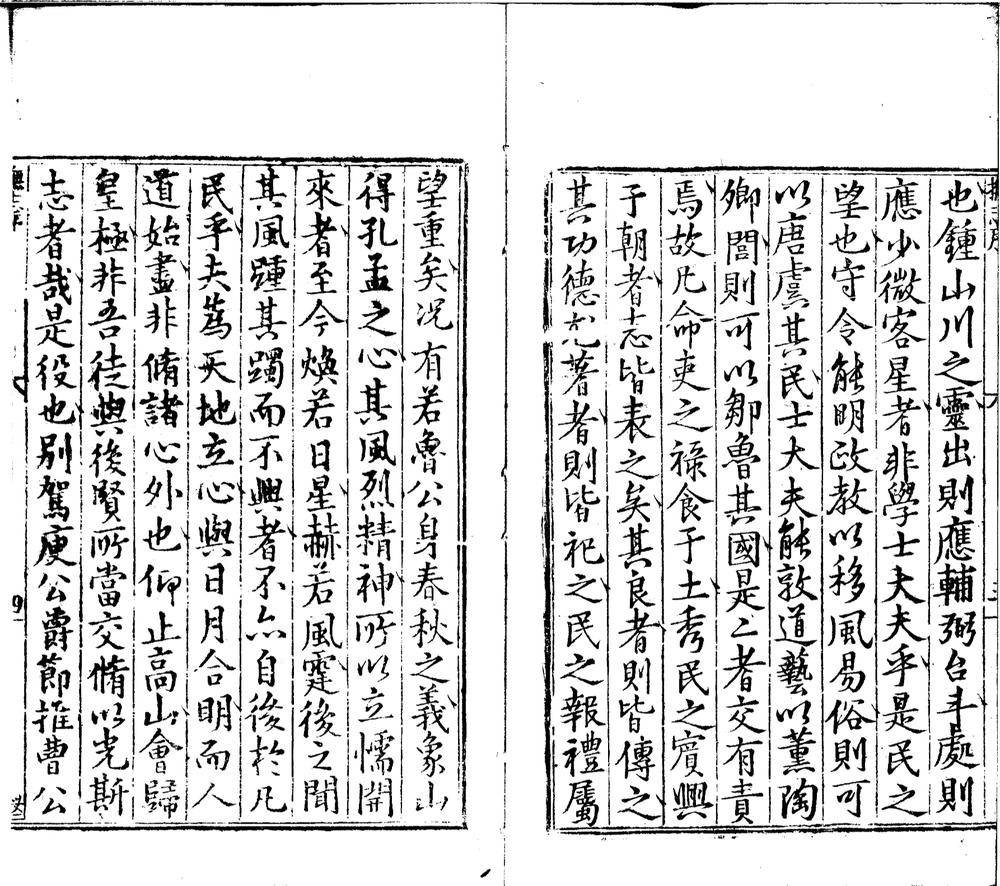 也鍾山川之靈出則應輔弼台斗處則
應少微客星者非學士大夫乎是民之
望也守令能明政教以移風易俗則可
以唐虞其民士大夫能敦道藝以薰陶
鄉閭則可以鄒魯其國是二者交有責
焉故凡命吏之祿食于土秀民之賓興
于朝者志皆表之矣其良者則皆傳之
其功德尤著者則皆祀之民之報禮厲
望重矣况有若魯公身春秋之義象山
得孔孟之心其風烈精神所以立懦開
來者至今煥若日星赫若風霆後之聞
其風踵其躅而不興者不亦自後於凡
民乎夫為天地立心與日月合明而人
道始盡非脩諸心外也仰止高山會歸
皇極非吾徒與後賢所當交脩以光斯
志者哉是役也別駕庾公爵節推曹公